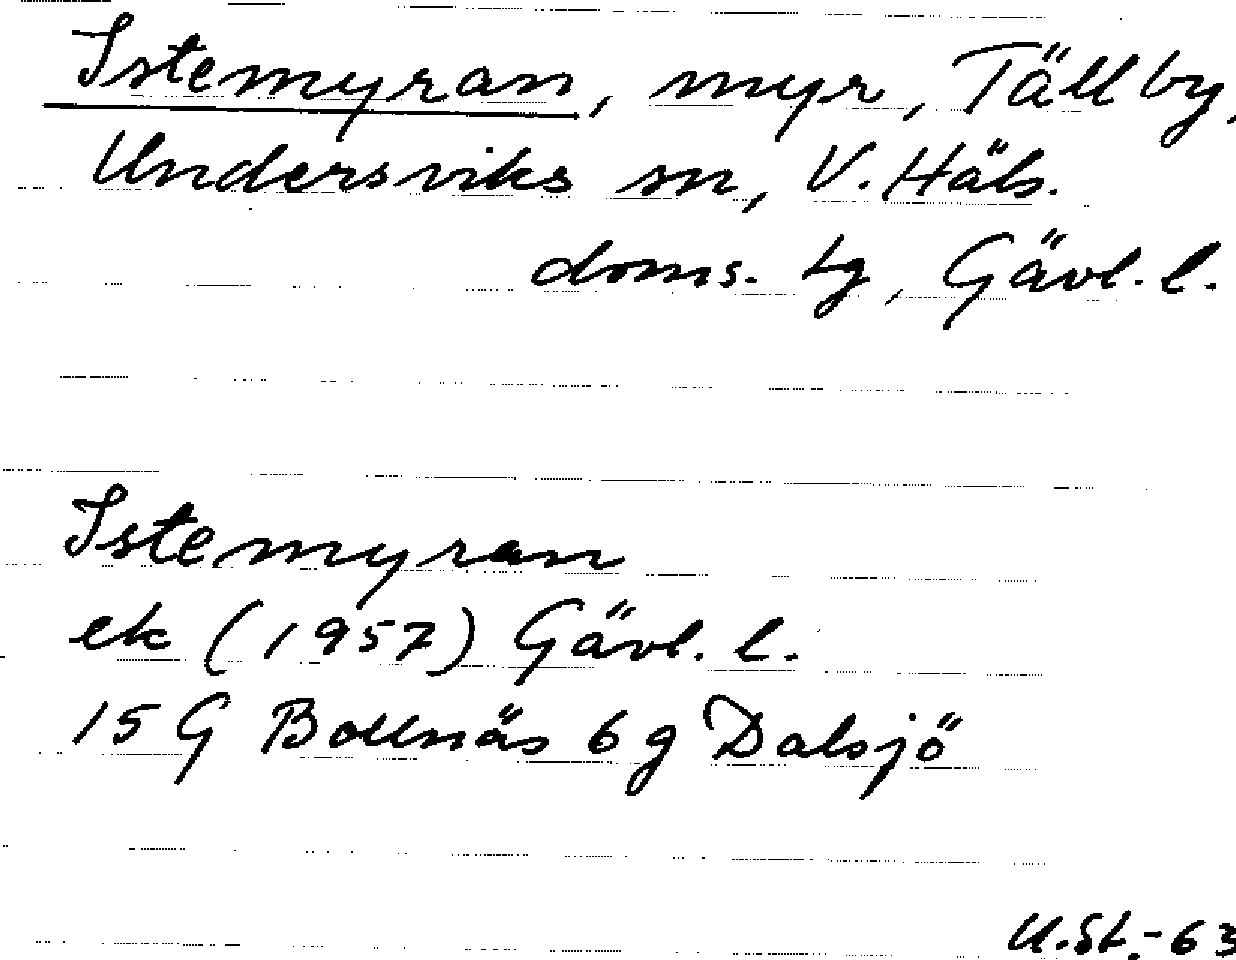 Istemyran, myr, Täll by,
Undersviks sn, V. Häls.
doms. tg, Gävl. l.
Istemyran
ek (1957) Gävl. l.
15 G Bollnäs 6 g Dalsjö
U.St.-63